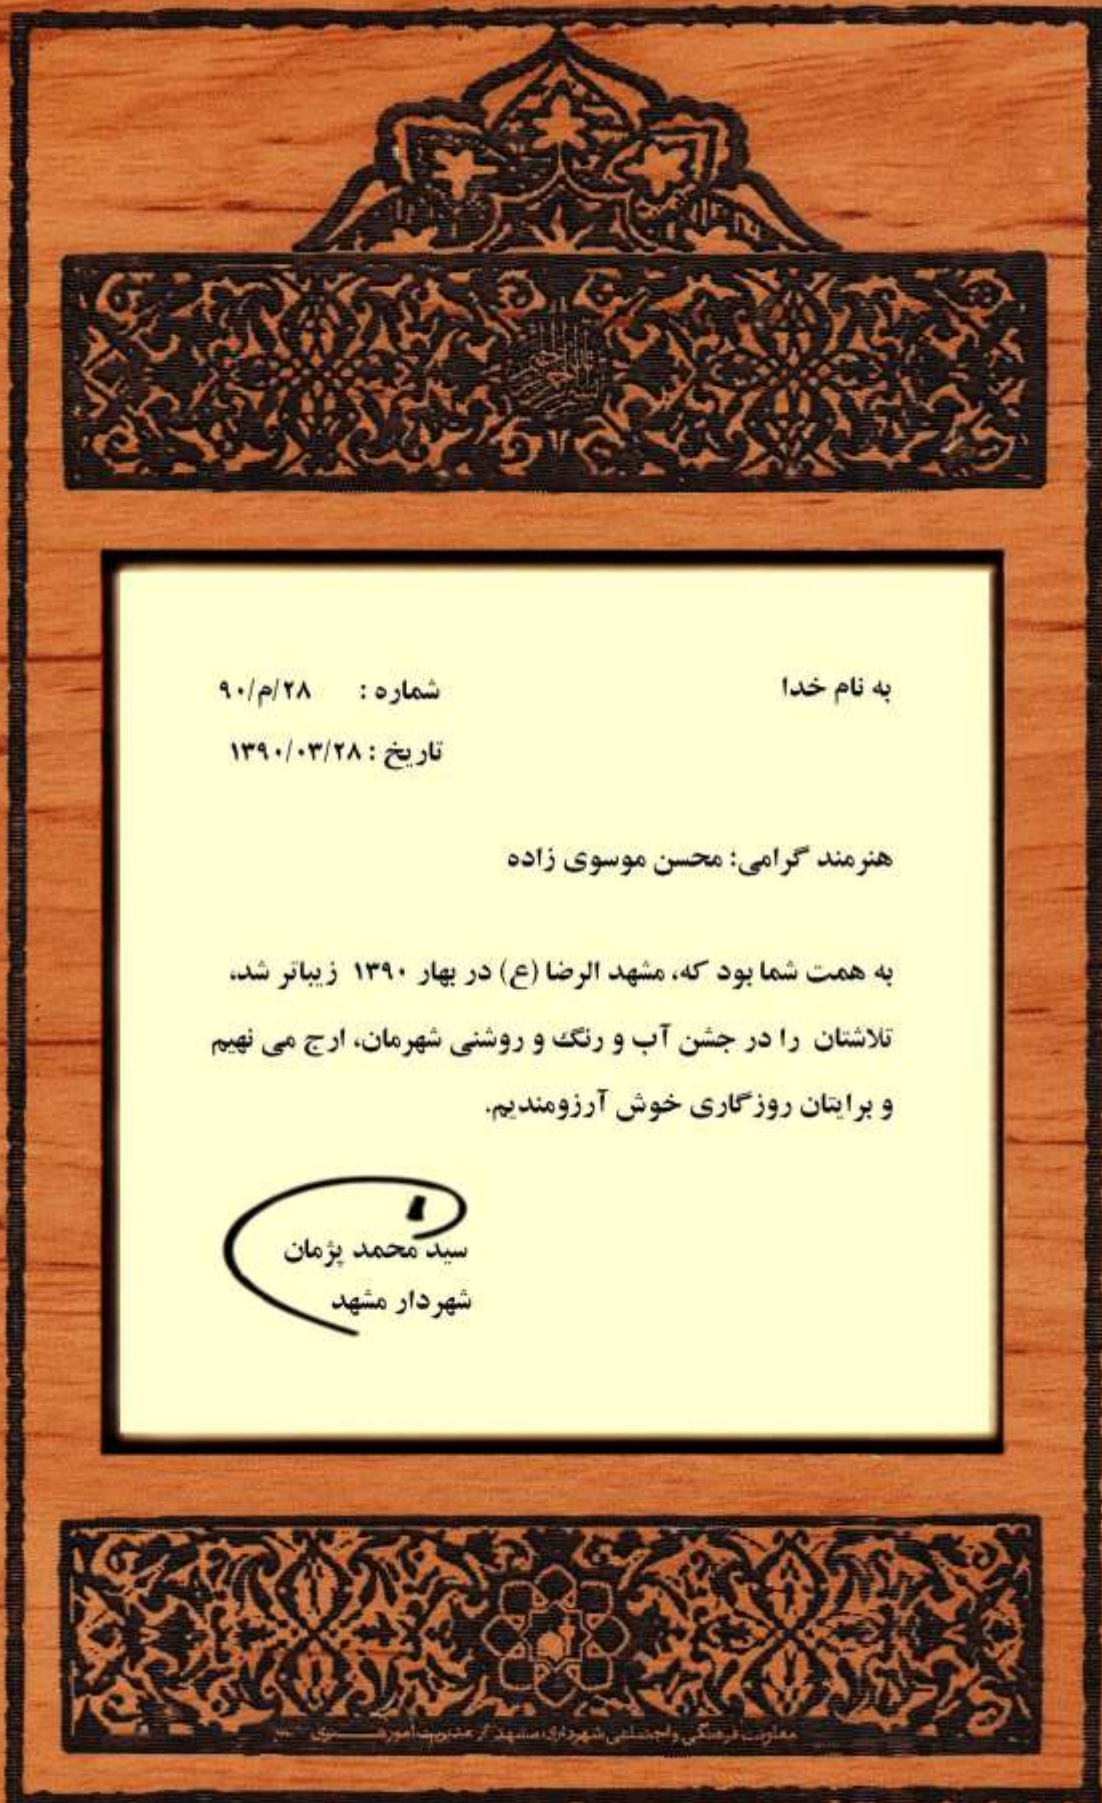 به نام خدا
شماره : ۲۸/م/۹۰
تاریخ : ۱۳۹۰/۰۳/۲۸
هنرمند گرامی: محسن موسوی زاده
به همت شما بود که، مشهد الرضا (ع) در بهار ۱۳۹۰ زیباتر شد،
تلاشتان را در جشن آب و رنگ و روشنی شهرمان، ارج می نهیم
و برایتان روزگاری خوش آرزومندیم.
سید محمد پژمان
شهردار مشهد
معاونت فرهنگی و اجتماعی شهرداری مشهد / مدیریت امور هنری